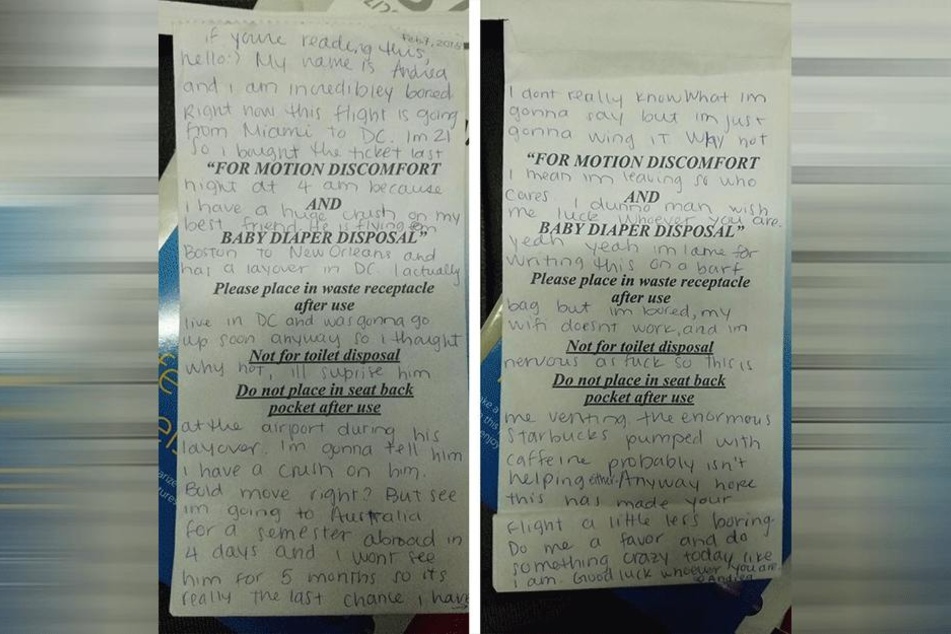 Feb 7, 2018
if you're reading this,
hello! My name is Andrea
and i am incredibley bored
Right now this flight is going
from Miami to DC. Im 21
so i baught the ticket last
"FOR MOTION DISCOMFORT
night at 4 am because
AND
i have a huge crush on my
best friend. He is flying from
BABY DIAPER DISPOSAL"
Boston to New Orleans and
has a layover in DC. I actually
Please place in waste receptacle
after use
live in DC and was gonna go
up soon anyway so i thaught
Not for toilet disposal
why not, ill suprise him
Do not place in seat back
pocket after use
at the airport during his
layover. I'm gonna tell him
i have a crush on him.
Bold move right? But see
im going to Australia
for a semester abroad in
4 days and i wont see
him for 5 months so its
really the last chance i have
I dont really know what im
gonna say but im just
gonna wing it why not
"FOR MOTION DISCOMFORT
I mean im leaving so who
AND
cares. I dunno man wish
me luck whoever you are.
BABY DIAPER DISPOSAL"
yeah yeah im lame for
writing this on a barf
Please place in waste receptacle
after use
bag but im bored, my
wifi doesnt work, and im
Not for toilet disposal
nervous as fuck so this is
Do not place in seat back
pocket after use
me venting. the enormous
Starbucks pumped with
caffeine probably isn't
helping either. Anyway hope
this has made your
flight a little less boring.
Do me a favor and do
something crazy today like
i am. Good luck whoever you are.
Andrea